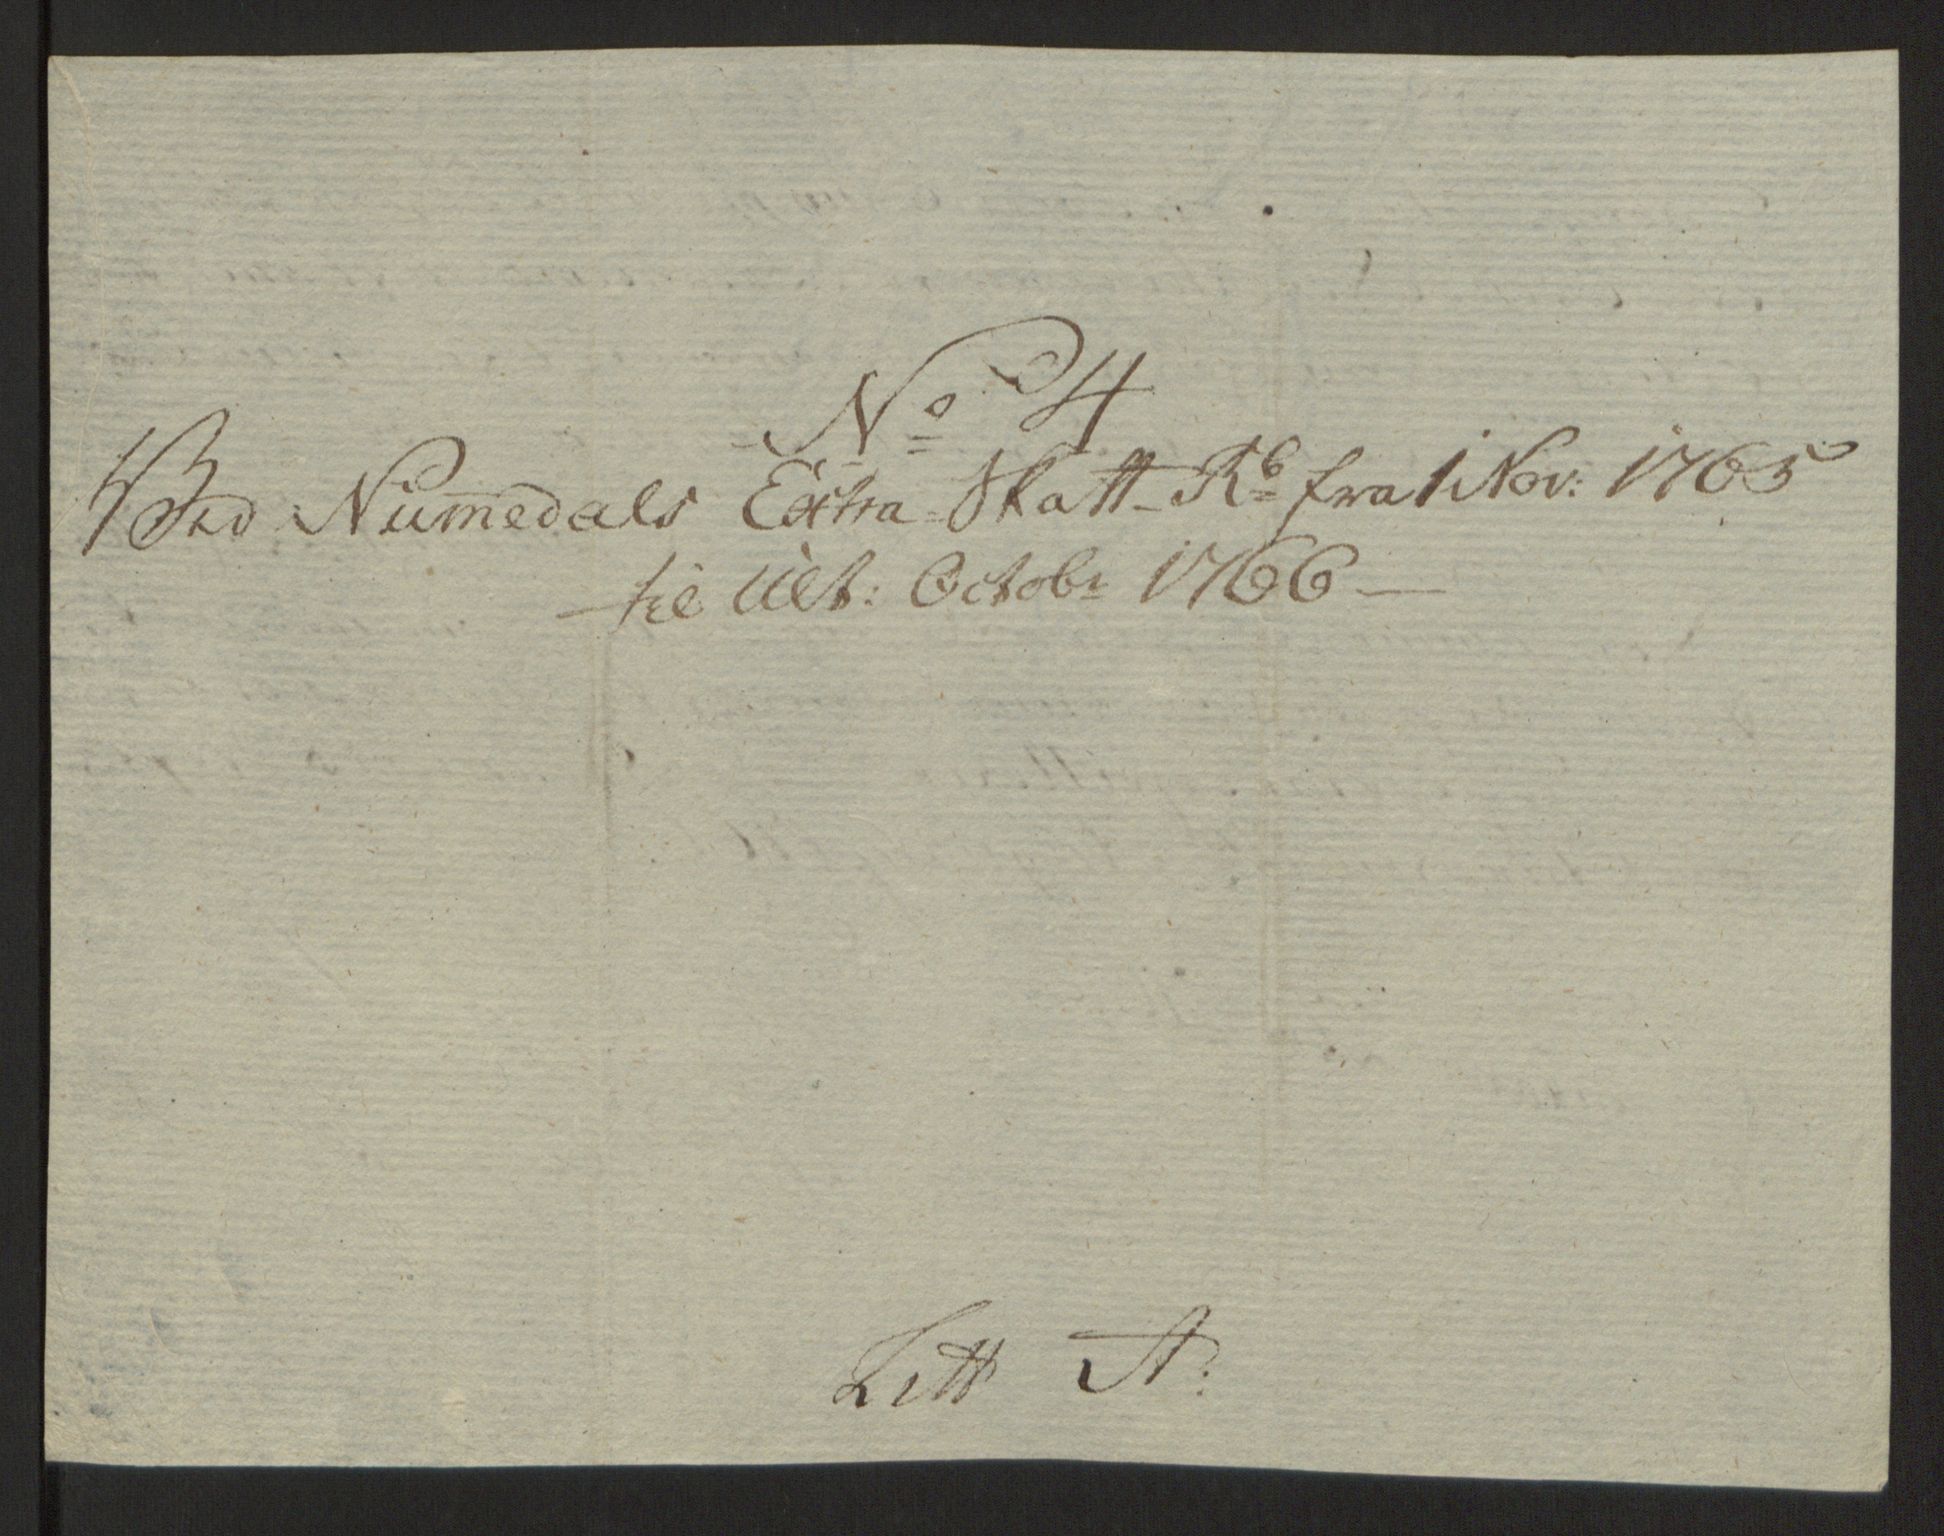 No 4
Ved Numedals Extra-Skatt-R fra 1 Nov: 1765
til Ult: Octobr 1766
Litt A: